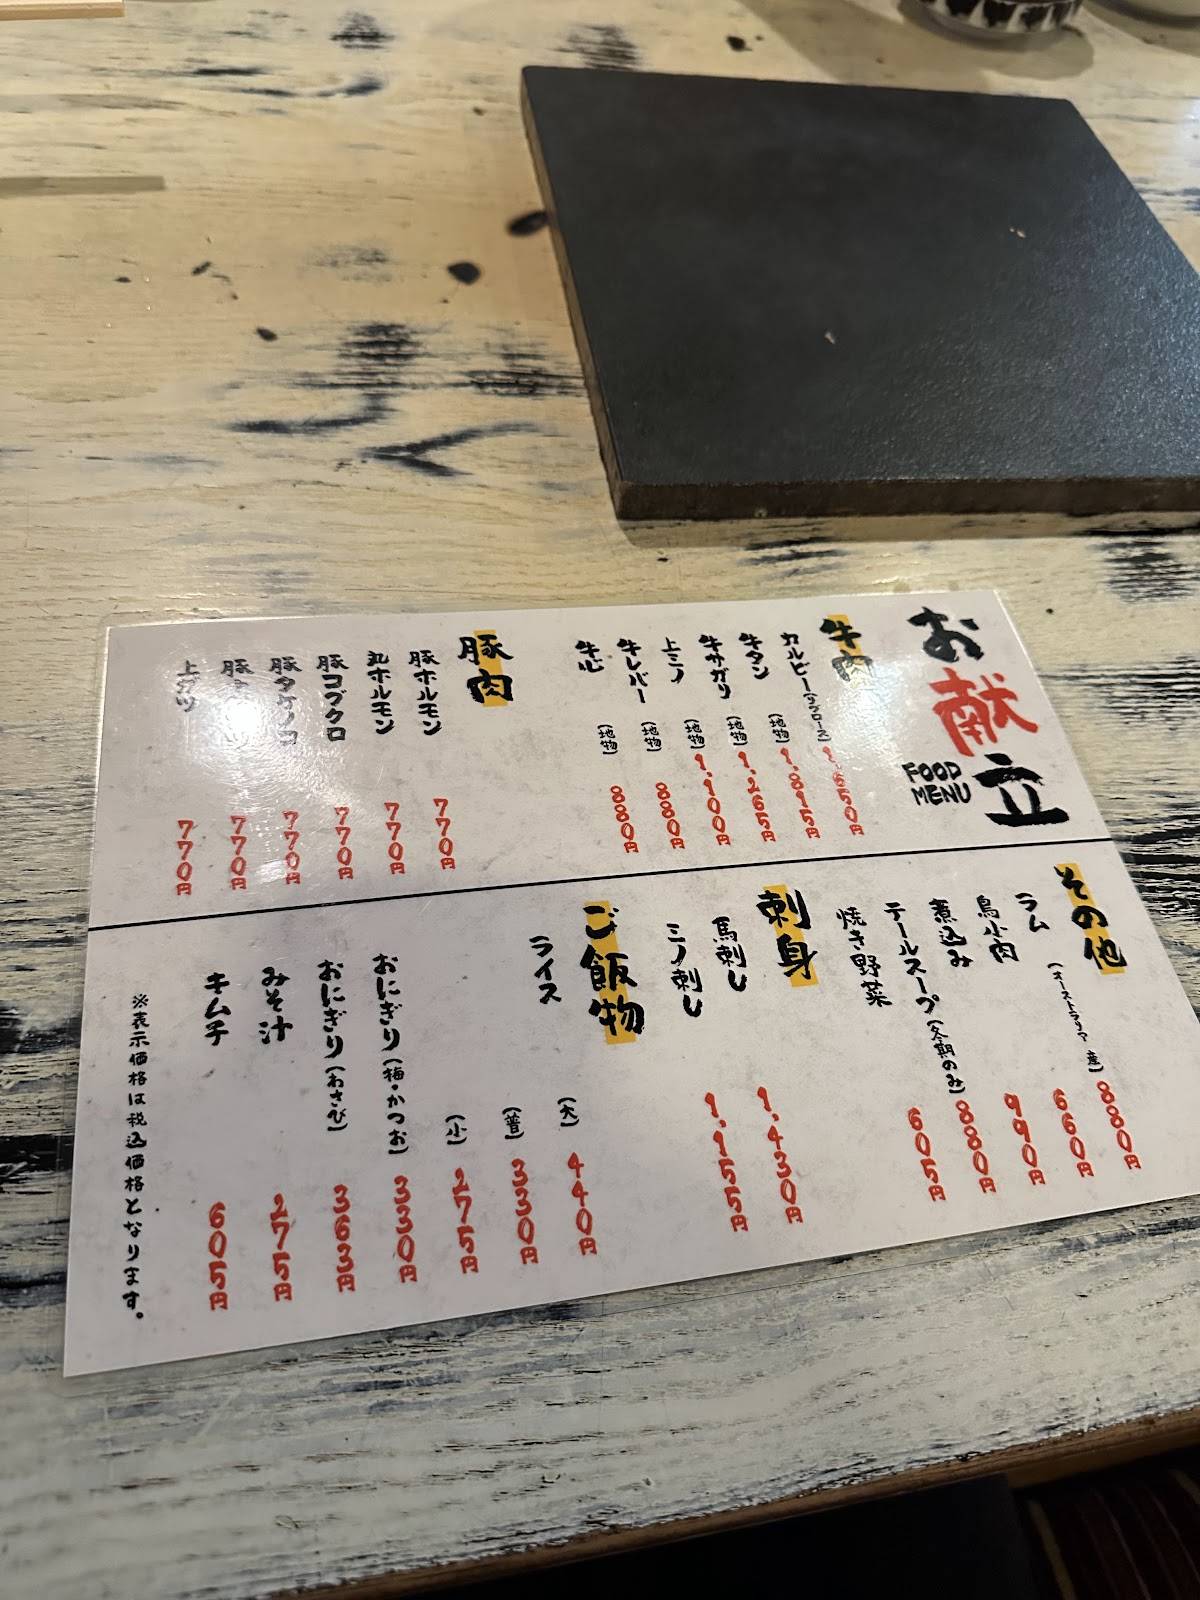 お献立
FOOD
MENU
牛肉
カルビー(リブロース) 1,650円
牛タン (地物) 1,815円
牛サガリ (地物) 1,265円
上ミノ (地物) 1,100円
牛レバー (地物) 880円
牛心 (地物) 880円
豚肉
豚ホルモン 770円
丸ホルモン 770円
豚コブクロ 770円
豚タケノコ 770円
豚 770円
上ガツ 770円
その他
ラム (オーストラリア産) 880円
鳥小肉 660円
煮込み 990円
テールスープ(冬期のみ) 880円
焼き野菜 605円
刺身
馬刺し 1,430円
ミノ刺し 1,155円
ご飯物
ライス (大) 440円
(普) 330円
(小) 275円
おにぎり(梅・かつお) 330円
おにぎり(わさび) 363円
みそ汁 275円
キムチ 605円
※表示価格は税込価格となります。